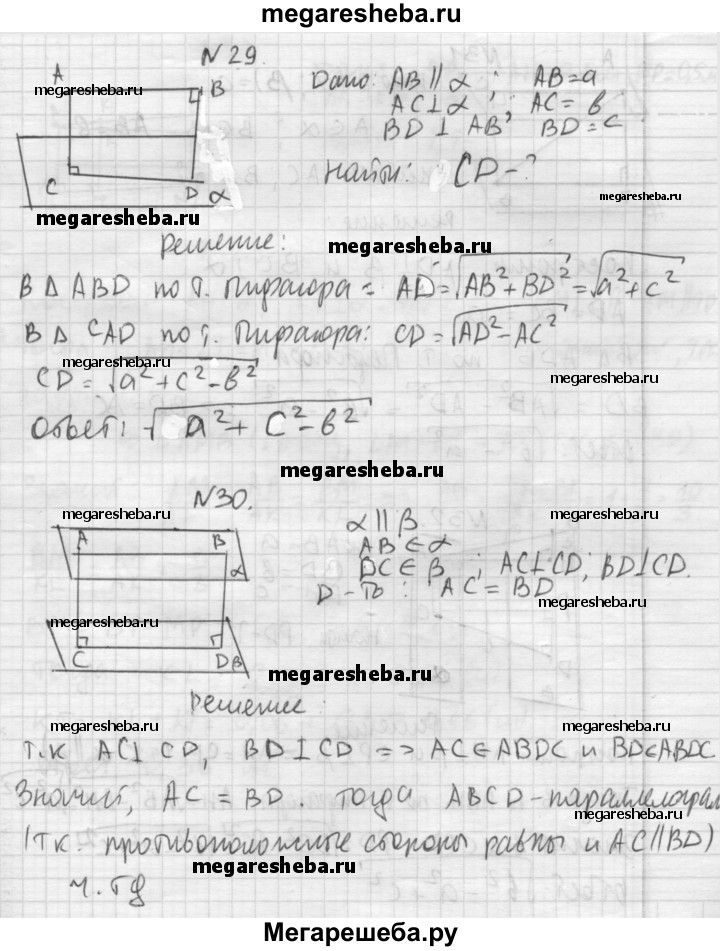 megaresheba.ru
N 29.
A
B
Дано: AB || α ; AB = a
megaresheba.ru
AC ⊥ α ; AC = в
BD ⊥ AB ; BD = c
Найти: CD - ?
C
D
α
megaresheba.ru
megaresheba.ru
Решение:
megaresheba.ru
В Δ ABD по т. Пифагора = AD = √AB² + BD² = √a² + c²
В Δ CAD по т. Пифагора: CD = √AD² - AC²
megaresheba.ru
CD = √a² + c² - в²
megaresheba.ru
Ответ: √a² + c² - в²
megaresheba.ru
N30.
megaresheba.ru
megaresheba.ru
A
B
α || β
AB ∈ α
α
DC ∈ β ; AC ⊥ CD; BD ⊥ CD.
Д-ть : AC = BD
megaresheba.ru
megaresheba.ru
C
D
β
megaresheba.ru
Решение :
megaresheba.ru
megaresheba.ru
Т.к AC ⊥ CD, BD ⊥ CD => AC ∈ ABDC и BD ∈ ABDC
Значит, AC = BD. тогда ABCD - параллелограм
megaresheba.ru
(т.к противоположные стороны равны и AC || BD)
megaresheba.ru
ч. тд
Мегарешеба.ру